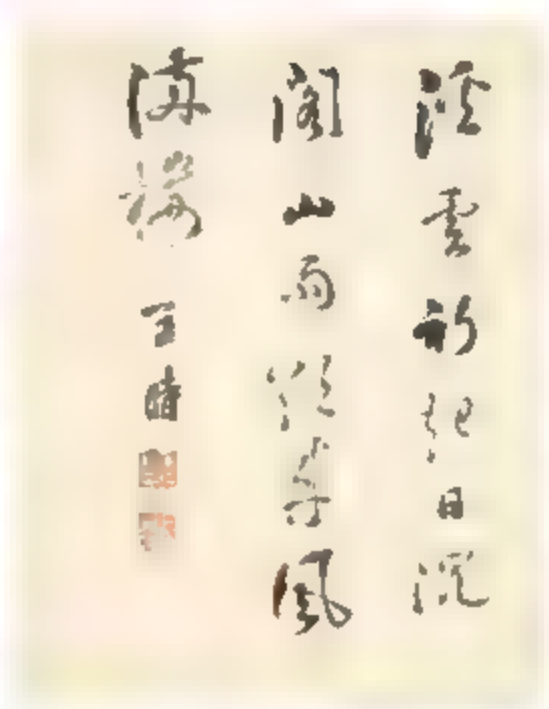 溪雲初起日沉
閣山雨欲來風
滿樓 王時